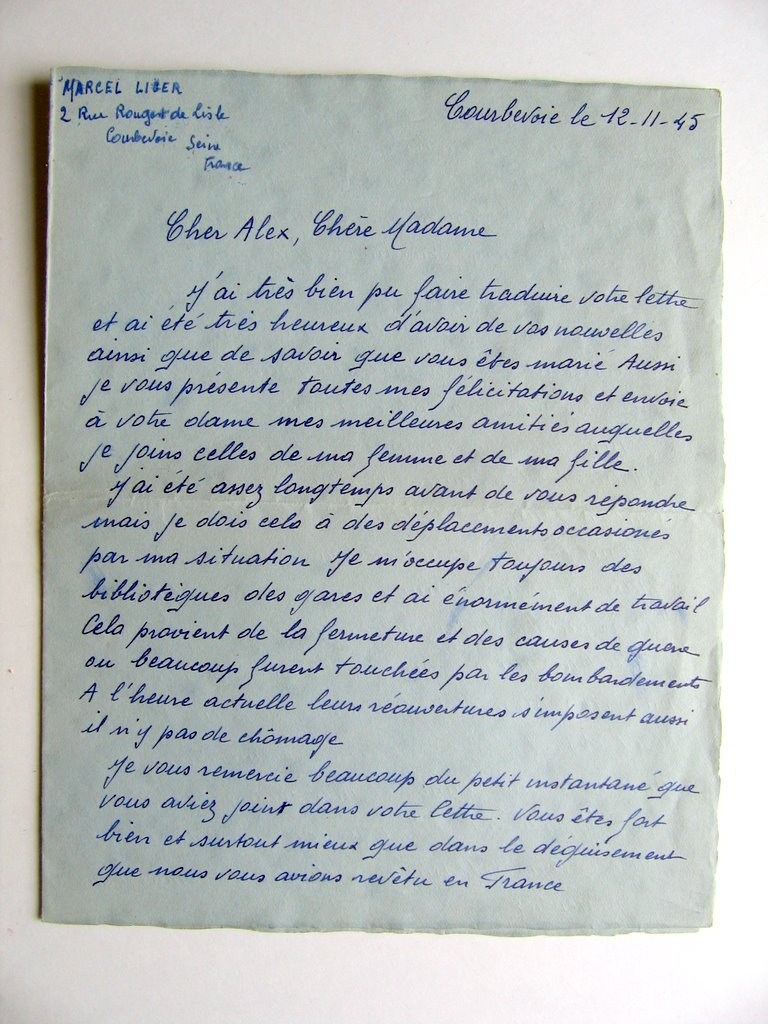 MARCEL LIBER
2 Rue Rouget de Lisle
Courbevoie Seine
France
Courbevoie le 12-11-45
Cher Alex, Chère Madame
J'ai très bien pu faire traduire votre lettre
et ai été très heureux d'avoir de vos nouvelles
ainsi que de savoir que vous êtes marié Aussi
je vous présente toutes mes félicitations et envoie
à votre dame mes meilleures amitiés auquelles
je joins celles de ma femme et de ma fille.
J'ai été assez longtemps avant de vous répondre
mais je dois cela à des déplacements occasionés
par ma situation Je m'occupe toujours des
bibliotèques des gares et ai énormément de travail
Cela provient de la fermeture et des causes de guerre
ou beaucoup furent touchées par les bombardements
A l'heure actuelle leurs réouvertures s'imposent aussi
il n'y pas de chômage
Je vous remercie beaucoup du petit instantané que
vous aviez joint dans votre lettre. Vous êtes fort
bien et surtout mieux que dans le déguisement
que nous vous avions revêtu en France